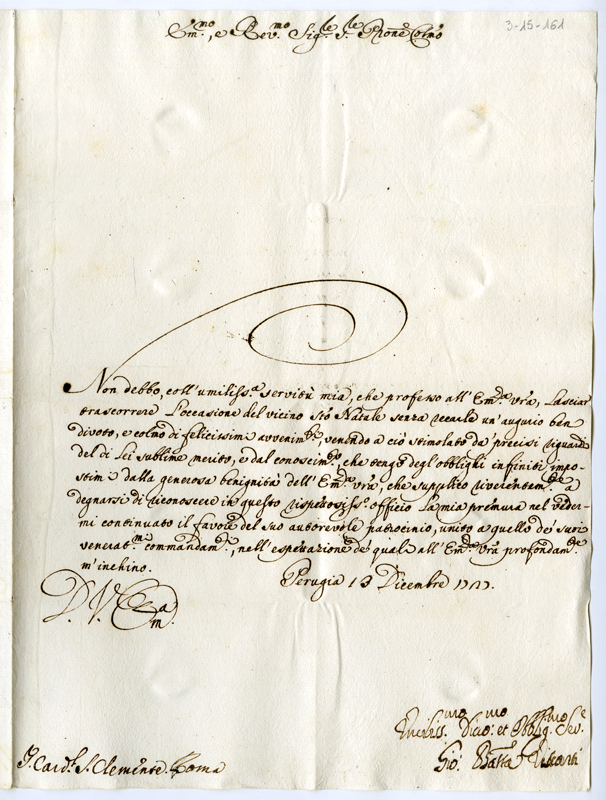 3-15-161
Em.no, e Rev.mo Sig.le S.le Prone Colmo
Non debbo, coll'umiliss.a servitù mia, che professo all'Em.a vrã, lasciar
trascorrere l'occasione del vicino Sto Natale senza recarle un'augurio ben
divoto, e colmo di felicissimi avvenim.ti, venendo a ciò stimolato da precisi riguardi
del di Lei sublime merito, e dal conoscim.to, che tengo degl'obblighi infiniti impo-
stimi dalla generosa benignità dell'Em.a vrã, che supplico riverentem.te a
degnarsi di riconoscere in questo rispettosiss.o officio la mia premura nel veder-
mi continuato il favore del suo autorevole patrocinio, unito a quello de' suoi
venerat.mi commandam.ti, nell'esperazione de quali all'Em.a vrã profondam.te
m'inchino.
Perugia 13 Dicembre 1727.
D. V. Em.a
Umiliss.mo Divo.mo et Obblig.mo Ser.e
Gio: Batta
S. Card.l S. Clemente. Roma